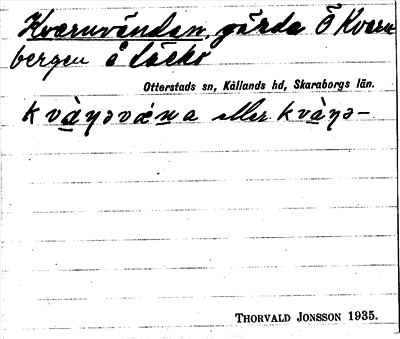 Kvarnvändan, gärde Ö Kvarn
bergen å Läckö
Otterstads sn, Kållands hd, Skaraborgs län.
kvàŋəvæna eller kvàŋə–
THORVALD JONSSON 1935.